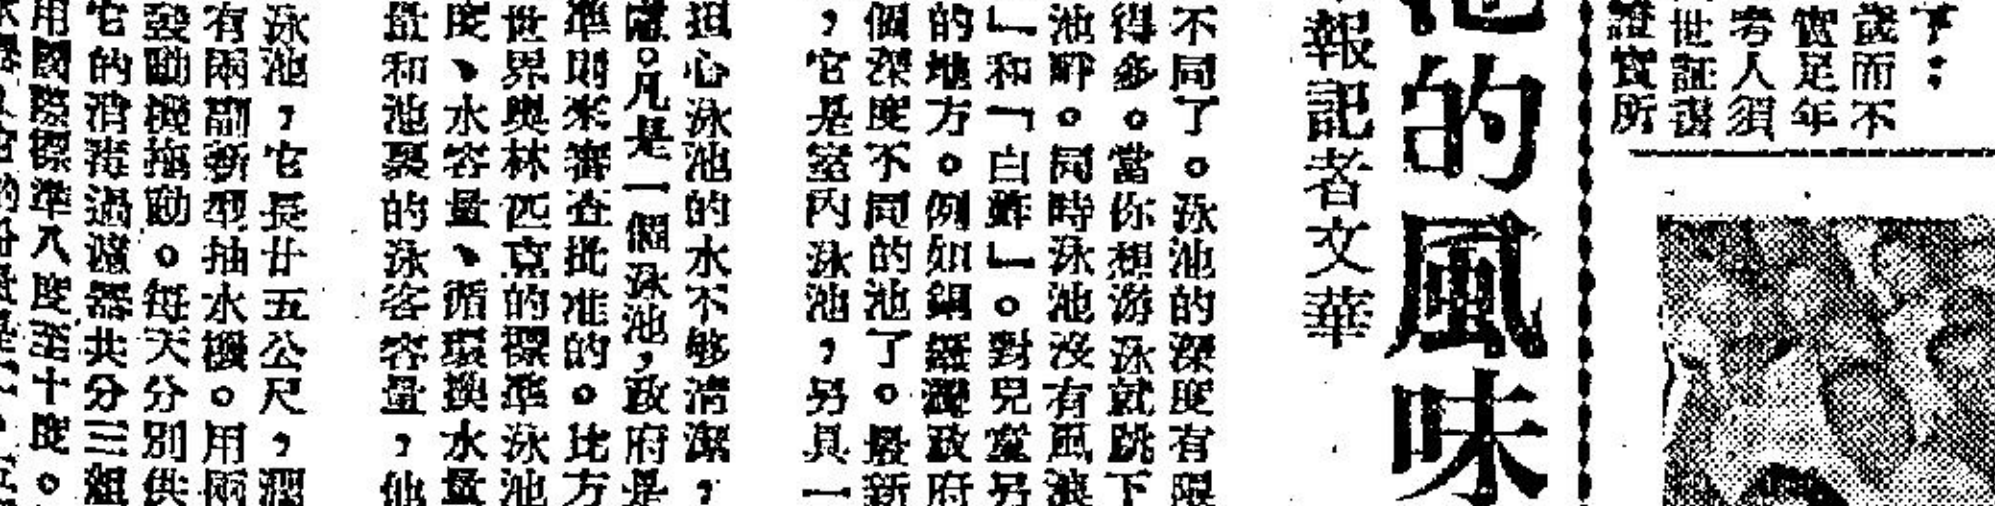 下：
歲而不
實足年
考人須
世証書
證實所
池的風味
報記者文華
不同了。泳池的深度有限
得多。當你想游泳就跳下
池畔。同時泳池沒有風浪
」和「白鮓」。對兒童另
的地方。例如銅鑼灣政府
個深度不同的池了。最新
，它是室內泳池，另具一
担心泳池的水不够清潔，
慮。凡是一個泳池，政府是
準則來審查批准的。比方
世界奧林匹克的標準泳池
度、水容量、循環換水量
量和池裏的泳客容量，他
泳池，它長廿五公尺，濶
有兩副新型抽水機。用兩
發動機拖動。每天分別供
它的消毒過濾器共分三組
用國際標準八度至十度。